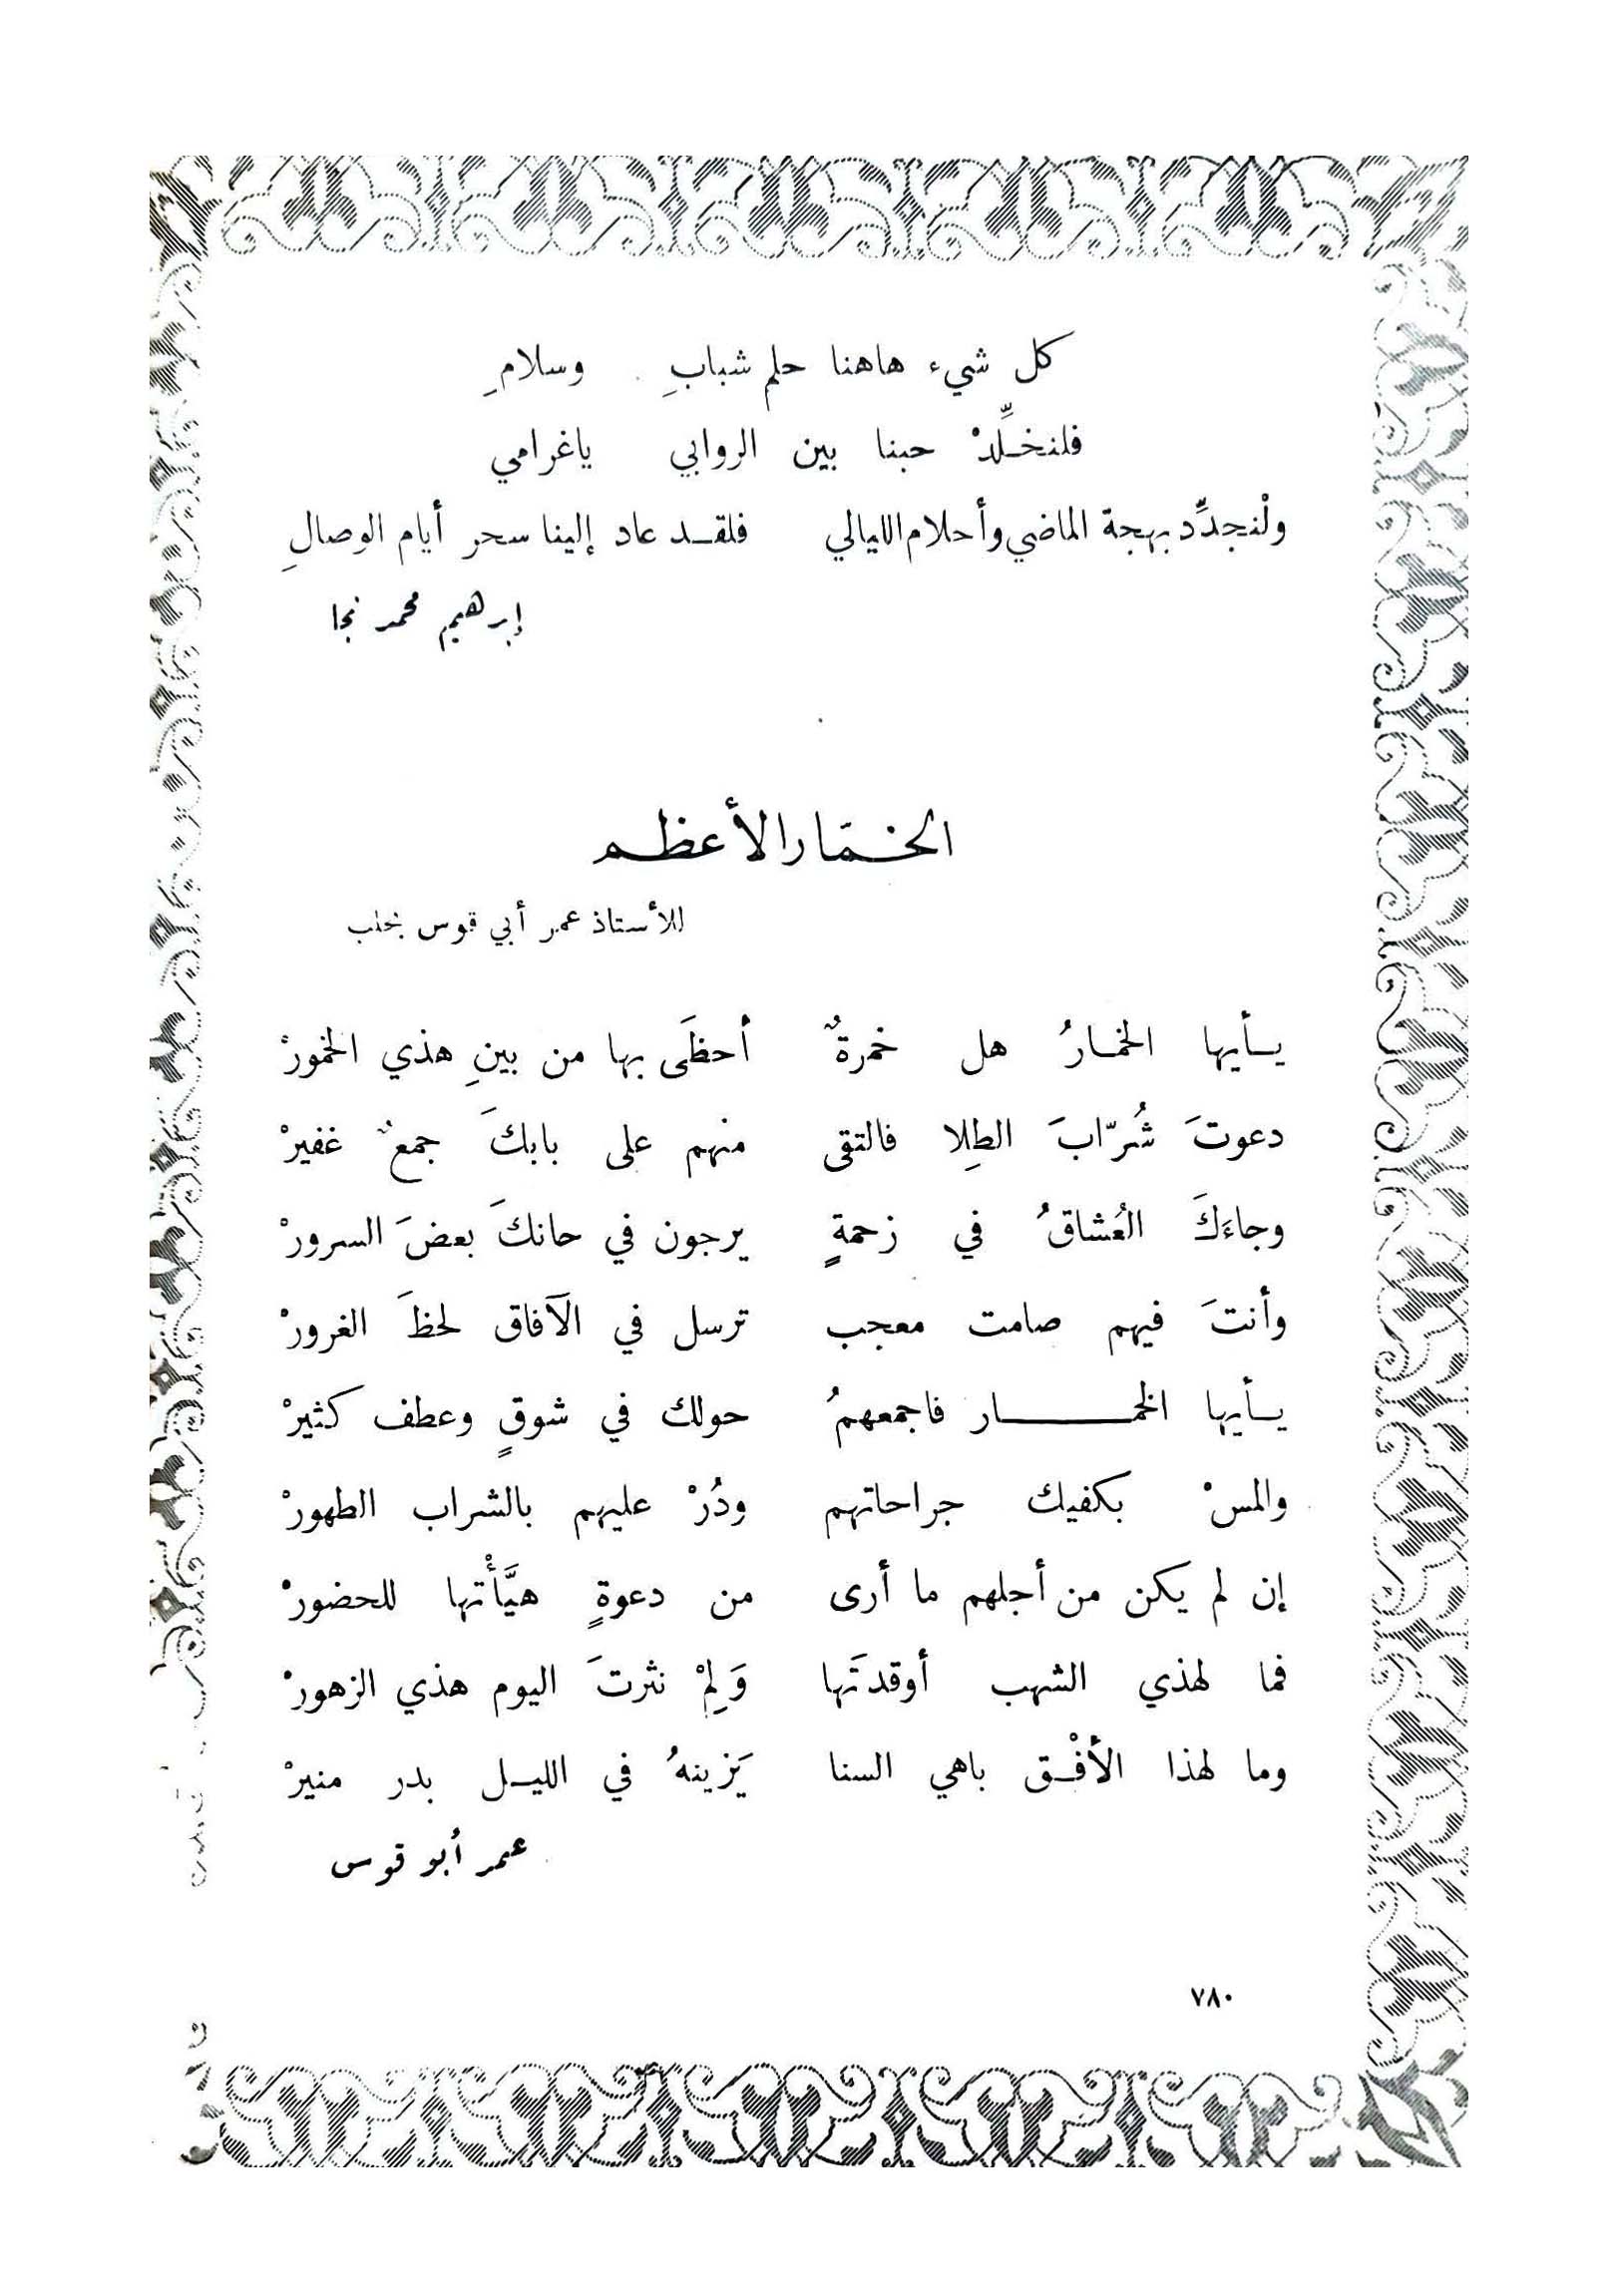 كل شيء هاهنا حلم شبابِ وسلامِ
فلنخلِّدْ حبنا بين الروابي ياغرامي
ولْنجدِّد بهجة الماضي وأحلام الليالي فلقد عاد إلينا سحر أيام الوصالِ
إبرهيم محمد نجا
الخمّار الأعظم
للأستاذ عمر أبي قوس بحلب
يأيها الخمارُ هل خمرةٌ أحظَى بها من بينِ هذي الخمورْ
دعوتَ شُرّابَ الطِلا فالتقى منهم على بابكَ جمعٌ غفيرْ
وجاءَكَ العُشاقُ في زحمةٍ يرجون في حانكَ بعضَ السرورْ
وأنتَ فيهم صامت معجب ترسل في الآفاق لحظَ الغرورْ
يأيها الخمار فاجمعهمُ حولك في شوقٍ وعطف كثيرْ
والمسْ بكفيك جراحاتهم ودُرْ عليهم بالشراب الطهورْ
إن لم يكن من أجلهم ما أرى من دعوةٍ هيَّأْتها للحضورْ
فما لهذي الشهب أوقدتَها وَلِمْ نثرتَ اليوم هذي الزهورْ
وما لهذا الأفْق باهي السنا يَزينهُ في الليل بدر منيرْ
عمر أبو قوس
٧٨٠